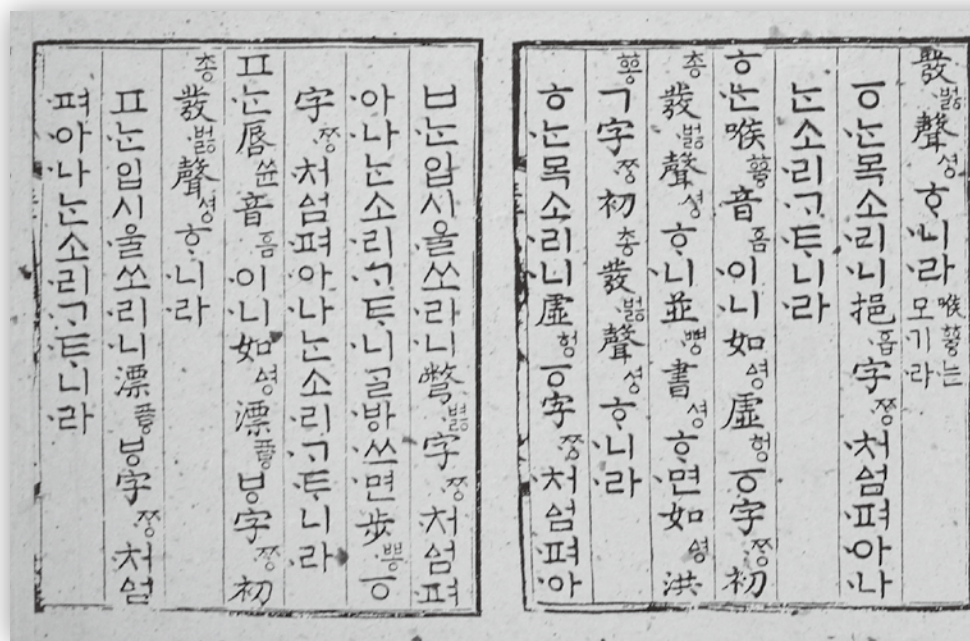 發벓聲셩ᄒᆞ니라喉ᅘᅮᇢ는모기라
ㆆᄂᆞᆫ목소리니挹흡字ᄍᆞᆼ처ᅀᅥᆷ펴아나
ᄂᆞᆫ소리ᄀᆞᄐᆞ니라
ㅎᄂᆞᆫ喉ᅘᅮᇢ音ᅙᅳᆷ이니如ᅀᅧᆼ虛헝ㆆ字ᄍᆞᆼ初
총發벓聲셩ᄒᆞ니並뼝書셩ᄒᆞ면如ᅀᅧᆼ洪
ᅘᅩᇰㄱ字ᄍᆞᆼ初총發벓聲셩ᄒᆞ니라
ㅎᄂᆞᆫ목소리니虛헝ㆆ字ᄍᆞᆼ처ᅀᅥᆷ펴아
ㅂᄂᆞᆫ입시울쏘리니彆볋字ᄍᆞᆼ처ᅀᅥᆷ펴
아나ᄂᆞᆫ소리ᄀᆞᄐᆞ니ᄀᆞᆯᄫᅡ쓰면步뽕ㆆ
字ᄍᆞᆼ처ᅀᅥᆷ펴아나ᄂᆞᆫ소리ᄀᆞᄐᆞ니라
ㅍᄂᆞᆫ脣쓘音ᅙᅳᆷ이니如ᅀᅧᆼ漂푤ᇢㅸ字ᄍᆞᆼ初
총發벓聲셩ᄒᆞ니라
ㅍᄂᆞᆫ입시울쏘리니漂푤ᇢㅸ字ᄍᆞᆼ처ᅀᅥᆷ
펴아나ᄂᆞᆫ소리ᄀᆞᄐᆞ니라